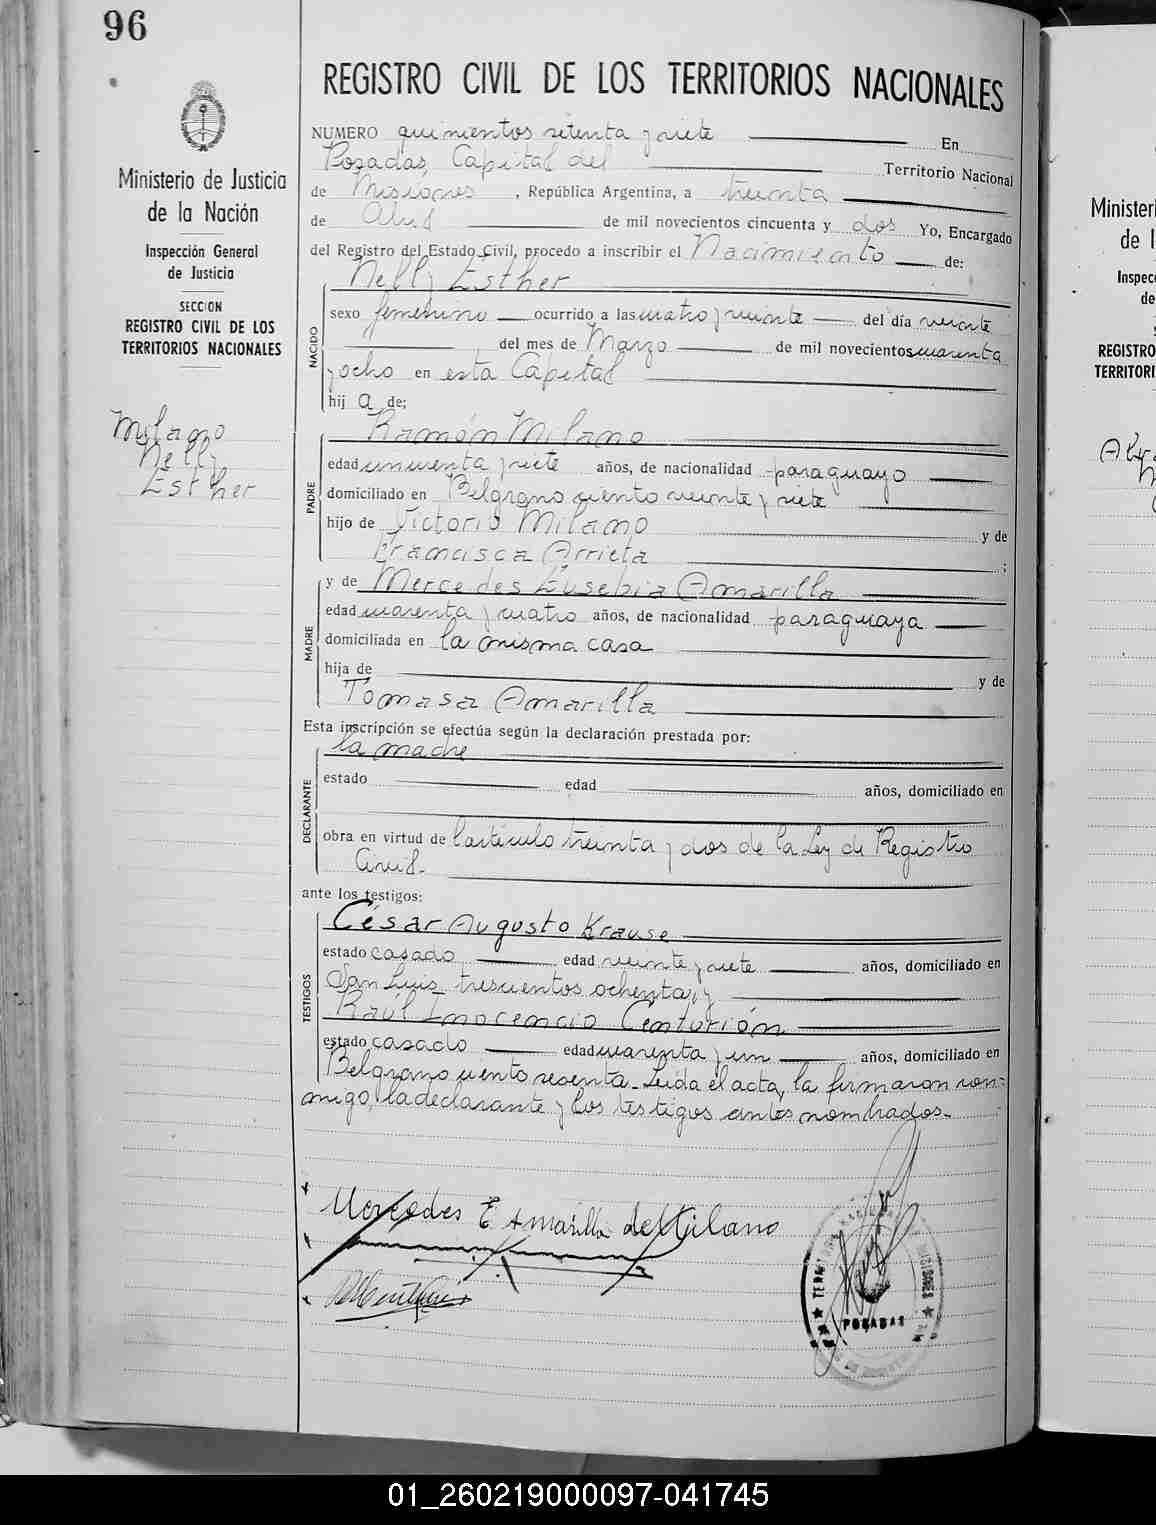 96
Ministerio de Justicia
de la Nación
Inspección General
de Justicia
SECCION
REGISTRO CIVIL DE LOS
TERRITORIOS NACIONALES
Milano
Nelly
Esther
REGISTRO CIVIL DE LOS TERRITORIOS NACIONALES
NUMERO quinientos setenta y siete En
Posadas, Capital del Territorio Nacional
de Misiones, República Argentina, a treinta
de Abril de mil novecientos cincuenta y dos Yo, Encargado
del Registro del Estado Civil, procedo a inscribir el Nacimiento de:
Nelly Esther
NACIDO
sexo femenino ocurrido a las cuatro y veinte del día veinte
del mes de Marzo de mil novecientos cuarenta
y ocho en esta Capital
hij a de:
Ramón Milano
PADRE
edad cincuenta y siete años, de nacionalidad paraguayo
domiciliado en Belgrano ciento veinte y siete
hijo de Victorio Milano y de
Francisca Arrieta;
y de Mercedes Eusebia Amarilla
MADRE
edad cuarenta y cuatro años, de nacionalidad paraguaya
domiciliada en la misma casa
hija de y de
Tomasa Amarilla
Esta inscripción se efectúa según la declaración prestada por:
la madre
DECLARANTE
estado edad años, domiciliado en
obra en virtud de l'artículo treinta y dos de la Ley de Registro
Civil.
ante los testigos:
César Augusto Krause
TESTIGOS
estado casado edad veinte y siete años, domiciliado en
San Luis trescientos ochenta, y
Raúl Inocencio Centurión
estado casado edad cuarenta y un años, domiciliado en
Belgrano ciento sesenta. Leida el acta, la firmaron con=
migo, la declarante y los testigos antes nombrados.
Mercedes E Amarilla de Milano
POSADAS
MISIONES
Minister
de l
Inspec
de
REGISTRO
TERRITORI
01_260219000097-041745